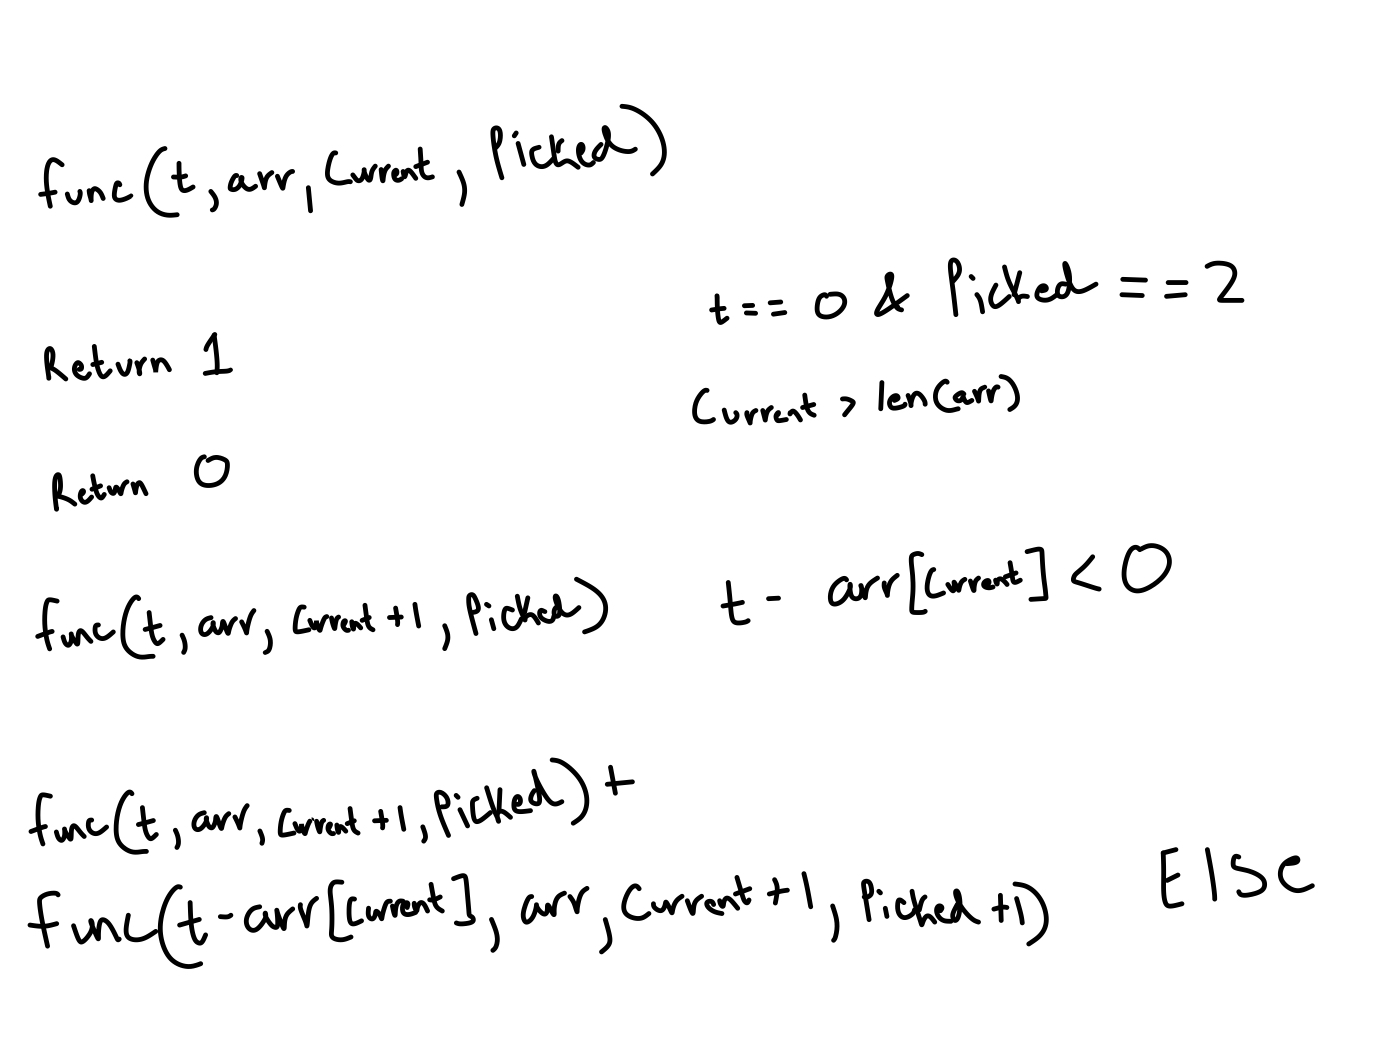 func(t, arr, Current, Picked)
t == 0 & Picked == 2
Return 1
Current > len(arr)
Return 0
func(t, arr, Current +1, Picked)
t - arr[Current] < 0
func(t, arr, Current +1, Picked) +
func(t - arr[Current], arr, Current +1, Picked +1)
Else